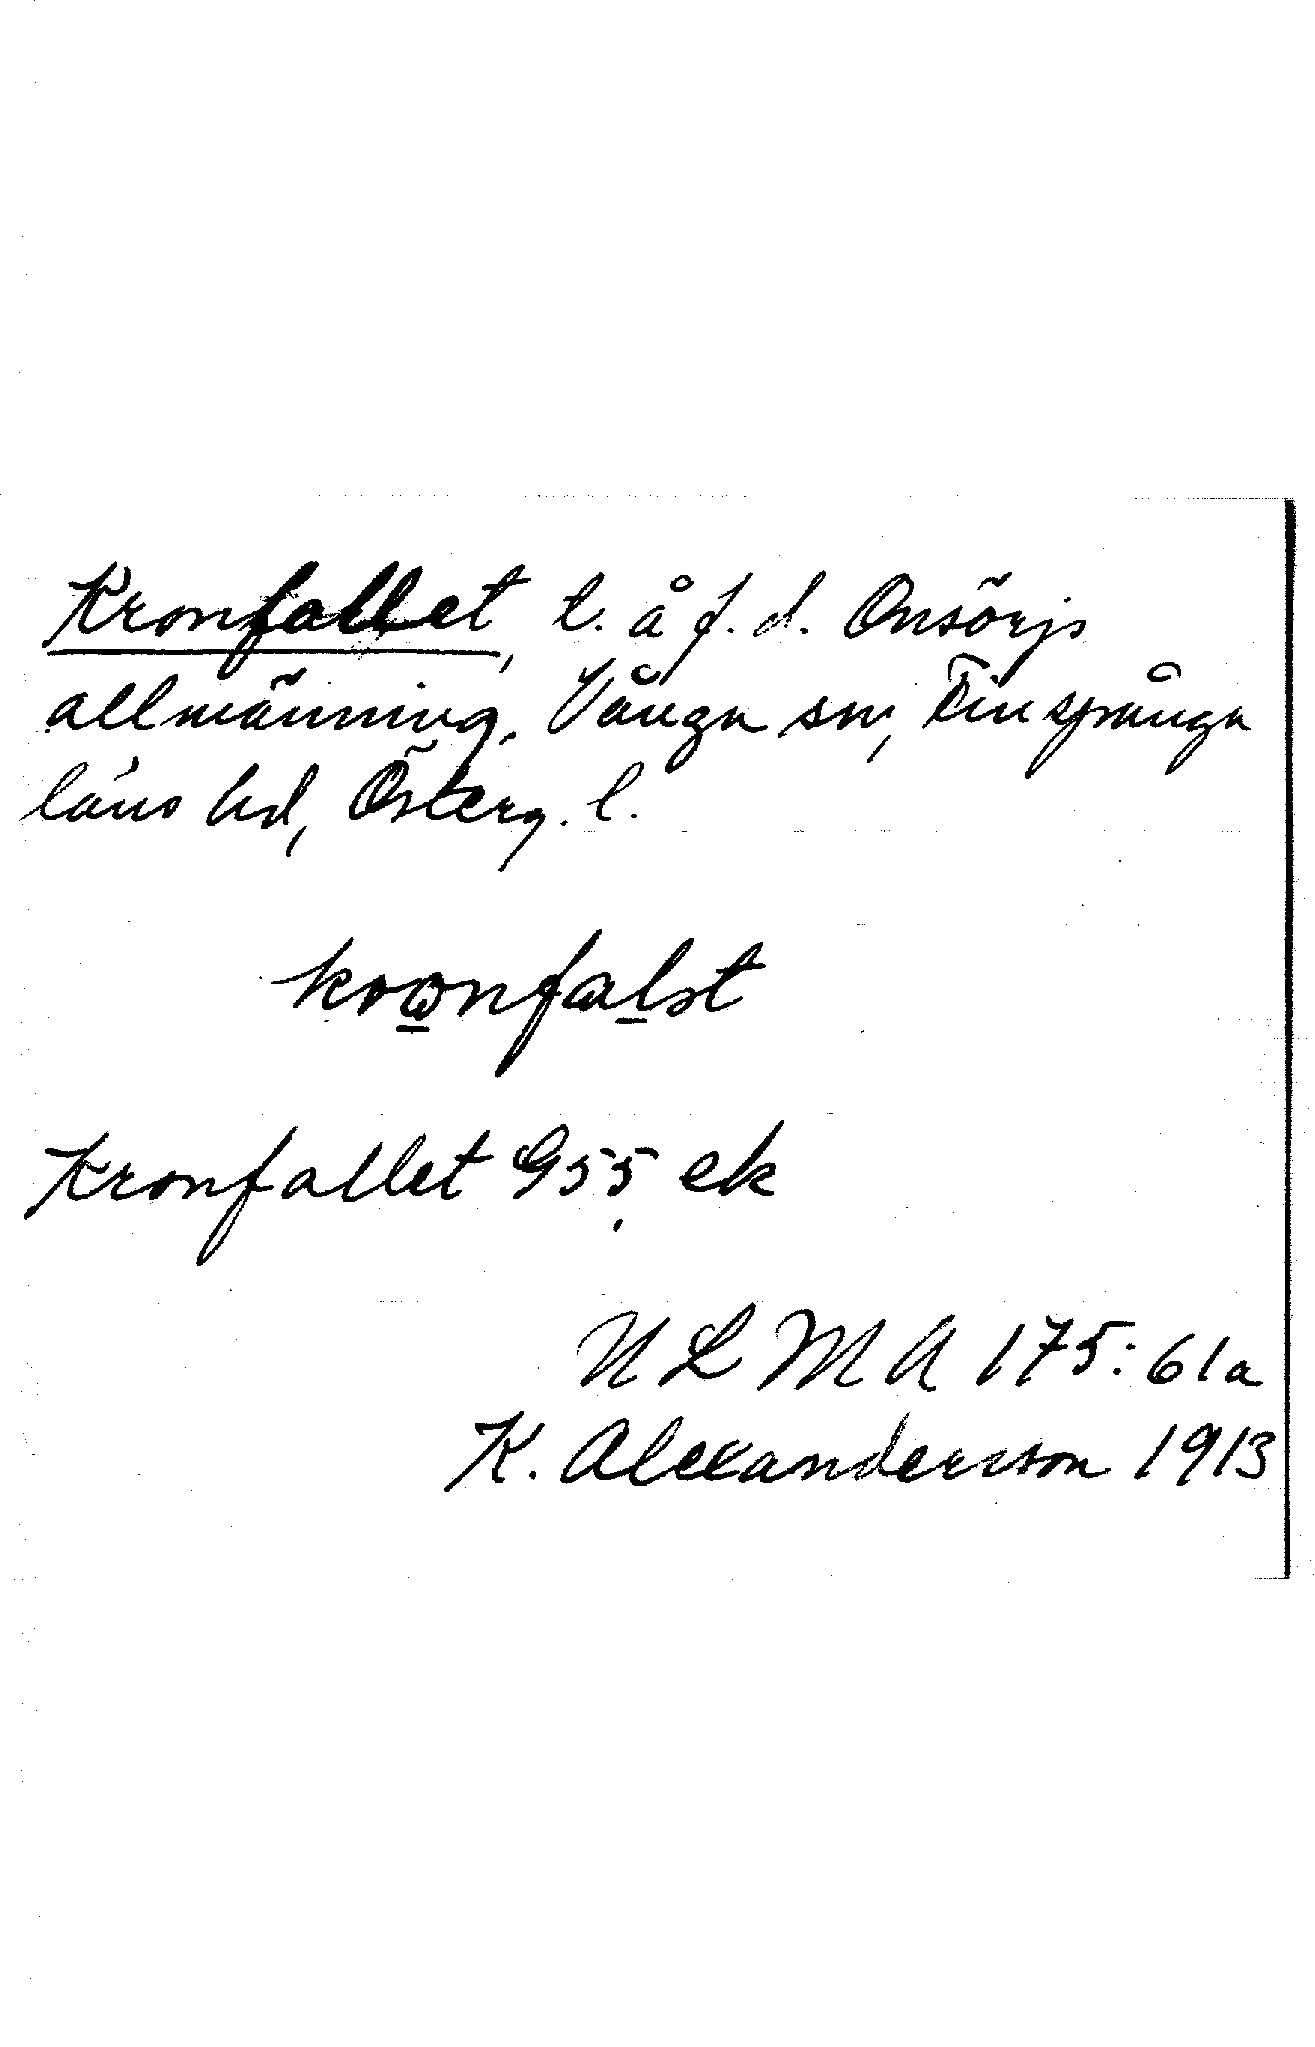 Kronfallet, t. å f. d. Onsörjs
allmänning, Vånga sn, Finspånga
läns hd, Österg. l.
Kronfallet G55 ek
ULMA 175:61a
K. Alexandersson 1913